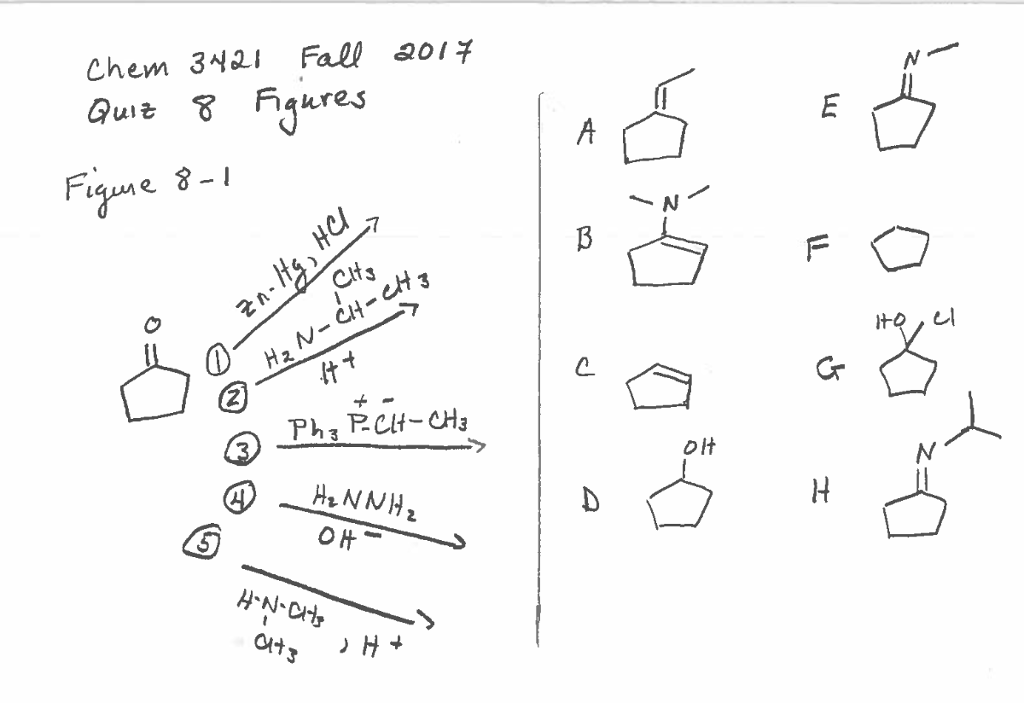 Chem 3421 Fall 2017
Quiz 8 Figures
Figure 8-1
O
① Zn-Hg, HCl
② H2N-CH-CH3
CH3
H+
③ Ph3 P-CH-CH3
+ -
④ H2NNH2
OH-
⑤ H-N-CH3
CH3 , H+
A
B N
C
D OH
E N
F
G HO Cl
H N